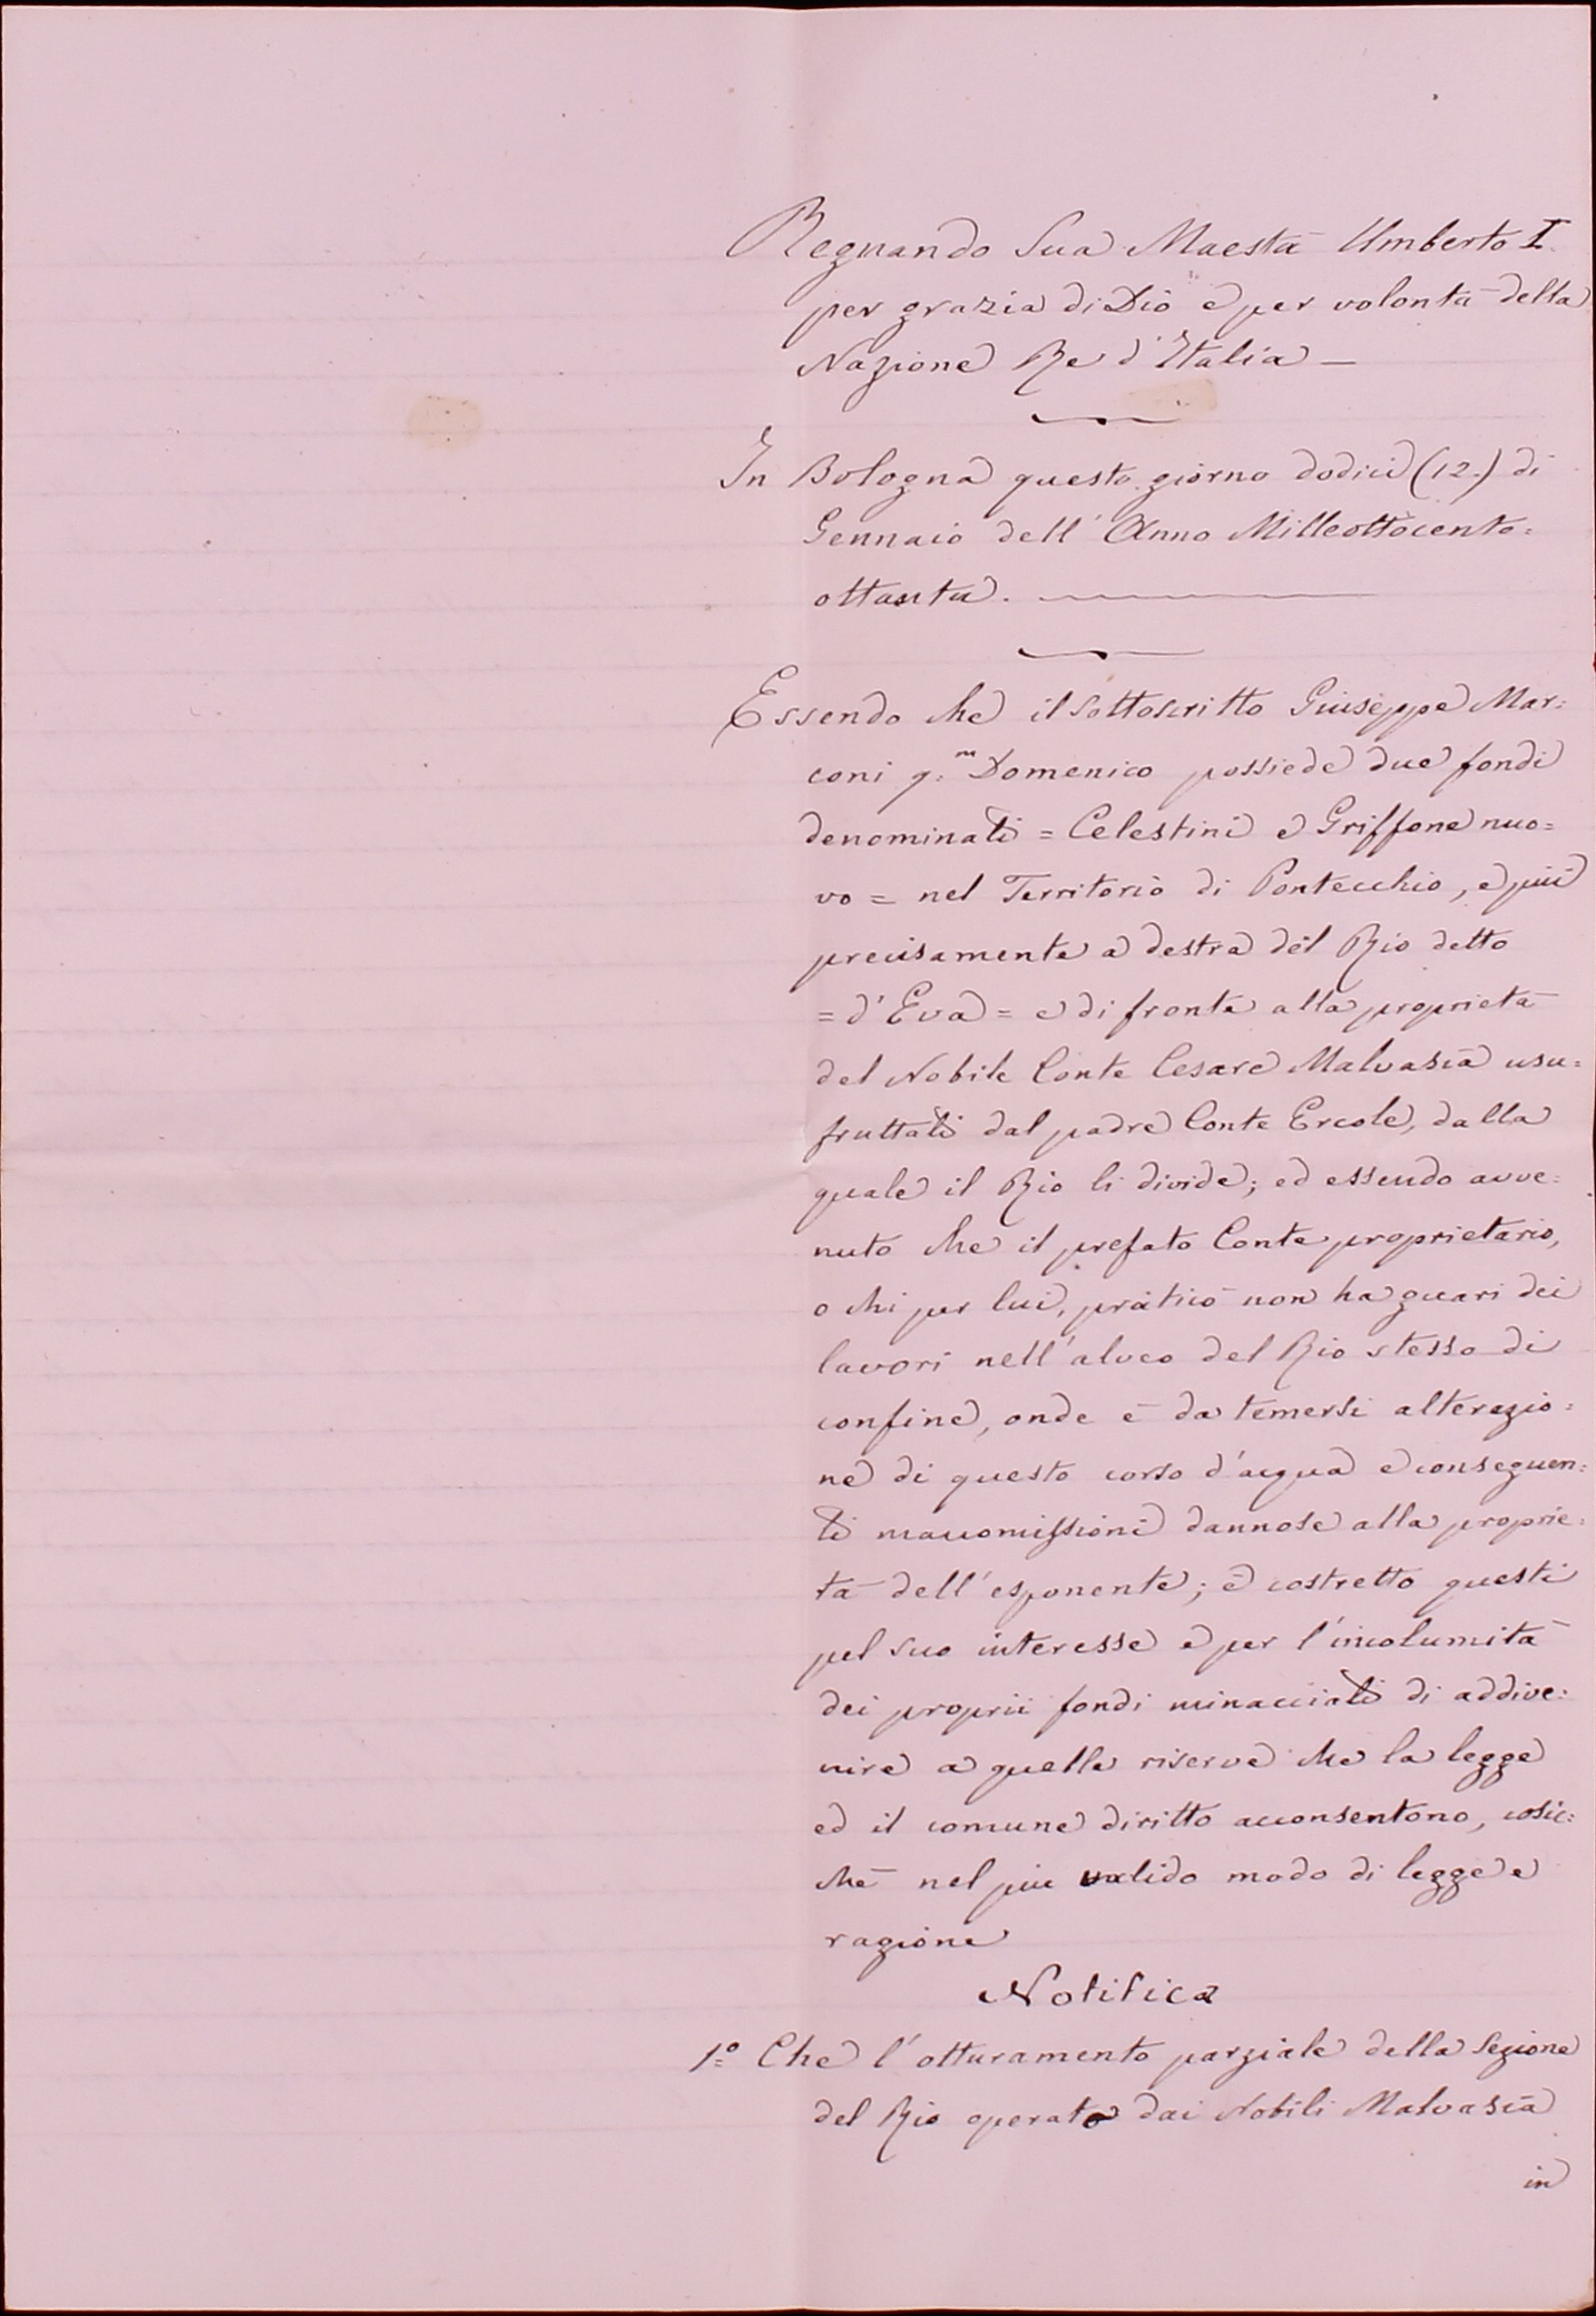 Regnando Sua Maestà Umberto I.
per grazia di Dio e per volontà della
Nazione Re d'Italia —
In Bologna questo giorno dodici (12.) di
Gennaio dell'Anno Milleottocento=
ottanta.
Essendo che il sottoscritto Giuseppe Mar=
coni q:m Domenico possiede due fondi
denominati = Celestini e Griffone nuo=
vo = nel Territorio di Pontecchio, e più
precisamente a destra del Rio detto
= d'Eva = e di fronte alla proprietà
del Nobile Conte Cesare Malvasia usu=
fruttati dal padre Conte Ercole, dalla
quale il Rio li divide; ed essendo avve=
nuto che il prefato Conte proprietario,
o chi per lui, praticò non ha guari dei
lavori nell'alveo del Rio stesso di
confine, onde è da temersi alterazio=
ne di questo corso d'acqua e conseguen=
ti manomissioni dannose alla proprie=
tà dell'esponente; è costretto questi
pel suo interesse e per l'incolumità
dei proprii fondi minacciati di addive=
nire a quelle riserve che la legge
ed il comune diritto acconsentono, cosic=
chè nel più valido modo di legge e
ragione
Notifica
1.º Che l'otturamento parziale della Sezione
del Rio operato dai Nobili Malvasia
in